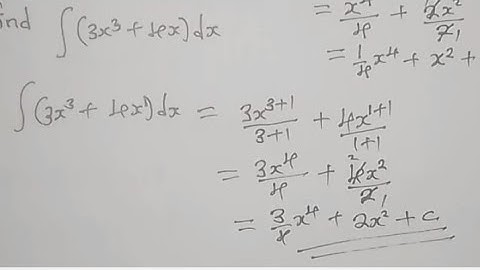 ind ∫(3x³ + 4x)dx
= x⁴/4 + 2x²/2 1
= 1/4 x⁴ + x² +
∫(3x³ + 4x¹)dx = 3x³⁺¹/3+1 + 4x¹⁺¹/1+1
= 3x⁴/4 + ²4x²/2 1
= 3/4 x⁴ + 2x² + c